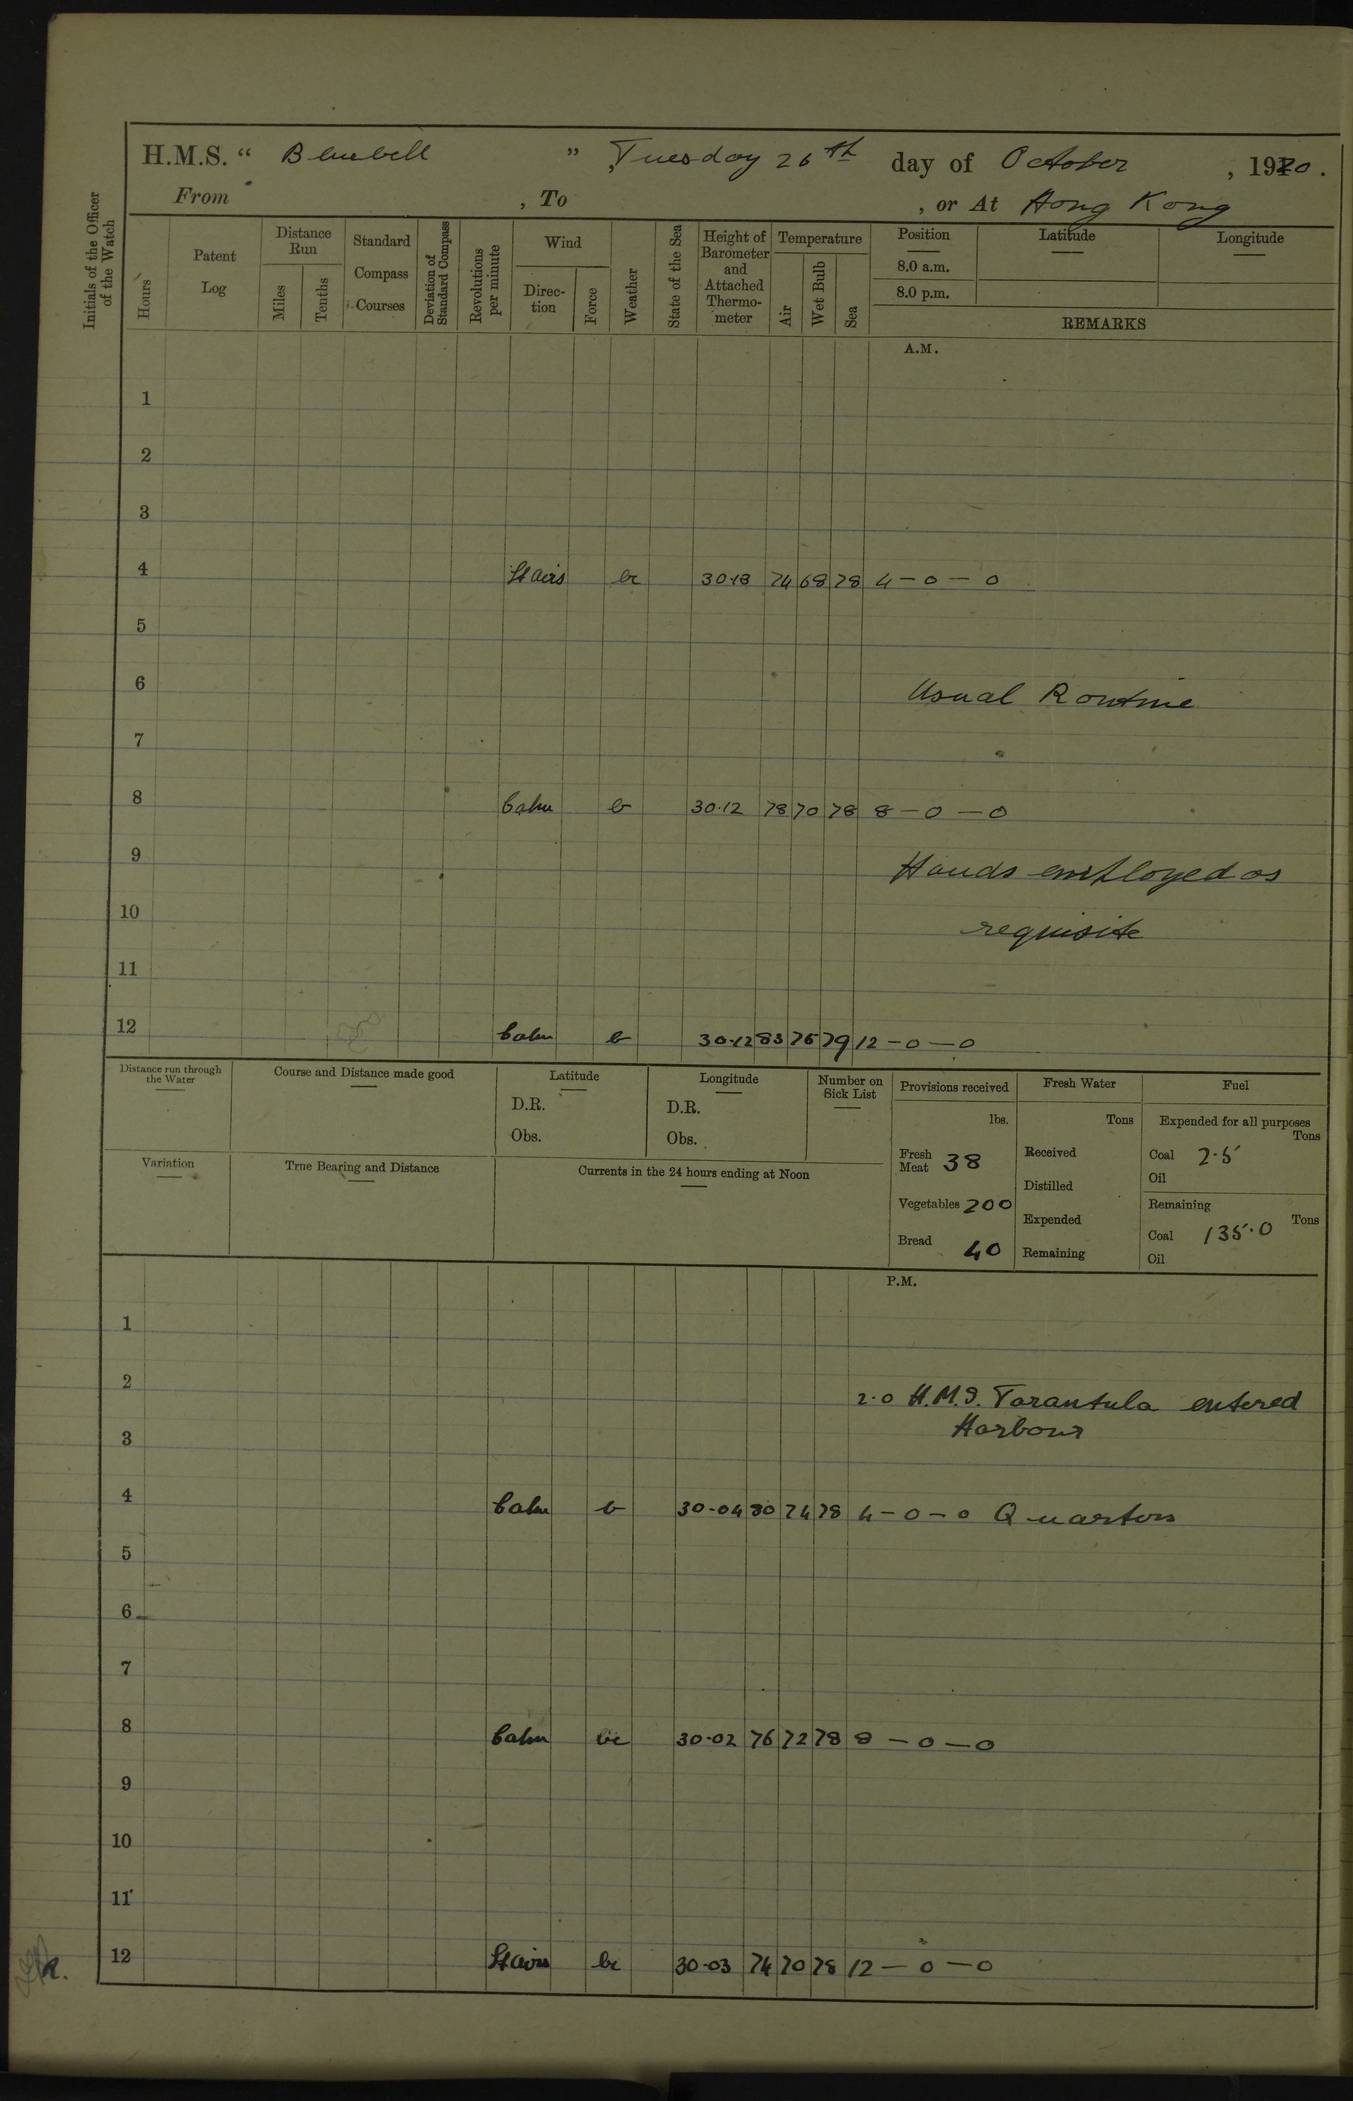 H.M.S. “ Bluebell ” , Tuesday 26th day of October , 1920 .
From , To , or At Hong Kong
Initials of the Officer of the Watch
Hours
Patent Log
Distance Run
Miles
Tenths
Standard Compass Courses
Deviation of Standard Compass
Revolutions per minute
Wind
Direc-tion
Force
Weather
State of the Sea
Height of Barometer and Attached Thermo-meter
Temperature
Air
Wet Bulb
Sea
Position
Latitude
Longitude
8.0 a.m.
8.0 p.m.
REMARKS
A.M.
1
2
3
4 Lt airs bc 30.13 74 68 78 4 – 0 – 0
5
6 Usual Routine
7
8 Calm b 30.12 78 70 78 8 – 0 – 0
9 Hands employed as
10 requisite
11
12 Calm b 30.12 83 76 79 12 – 0 – 0
Distance run through the Water
Course and Distance made good
Latitude
D.R.
Obs.
Longitude
D.R.
Obs.
Number on Sick List
Provisions received
lbs.
Fresh Meat 38
Vegetables 200
Bread 40
Fresh Water
Tons
Received
Distilled
Expended
Remaining
Fuel
Expended for all purposes
Tons
Coal 2.5
Oil
Remaining
Tons
Coal 135.0
Oil
Variation
True Bearing and Distance
Currents in the 24 hours ending at Noon
P.M.
1
2 2.0 H.M.S. Tarantula entered
3 Harbour
4 Calm b 30.04 80 74 78 4 – 0 – 0 Quarters
5
6
7
8 Calm bc 30.02 76 72 78 8 – 0 – 0
9
10
11
12 Lt airs bc 30.03 74 70 78 12 – 0 – 0